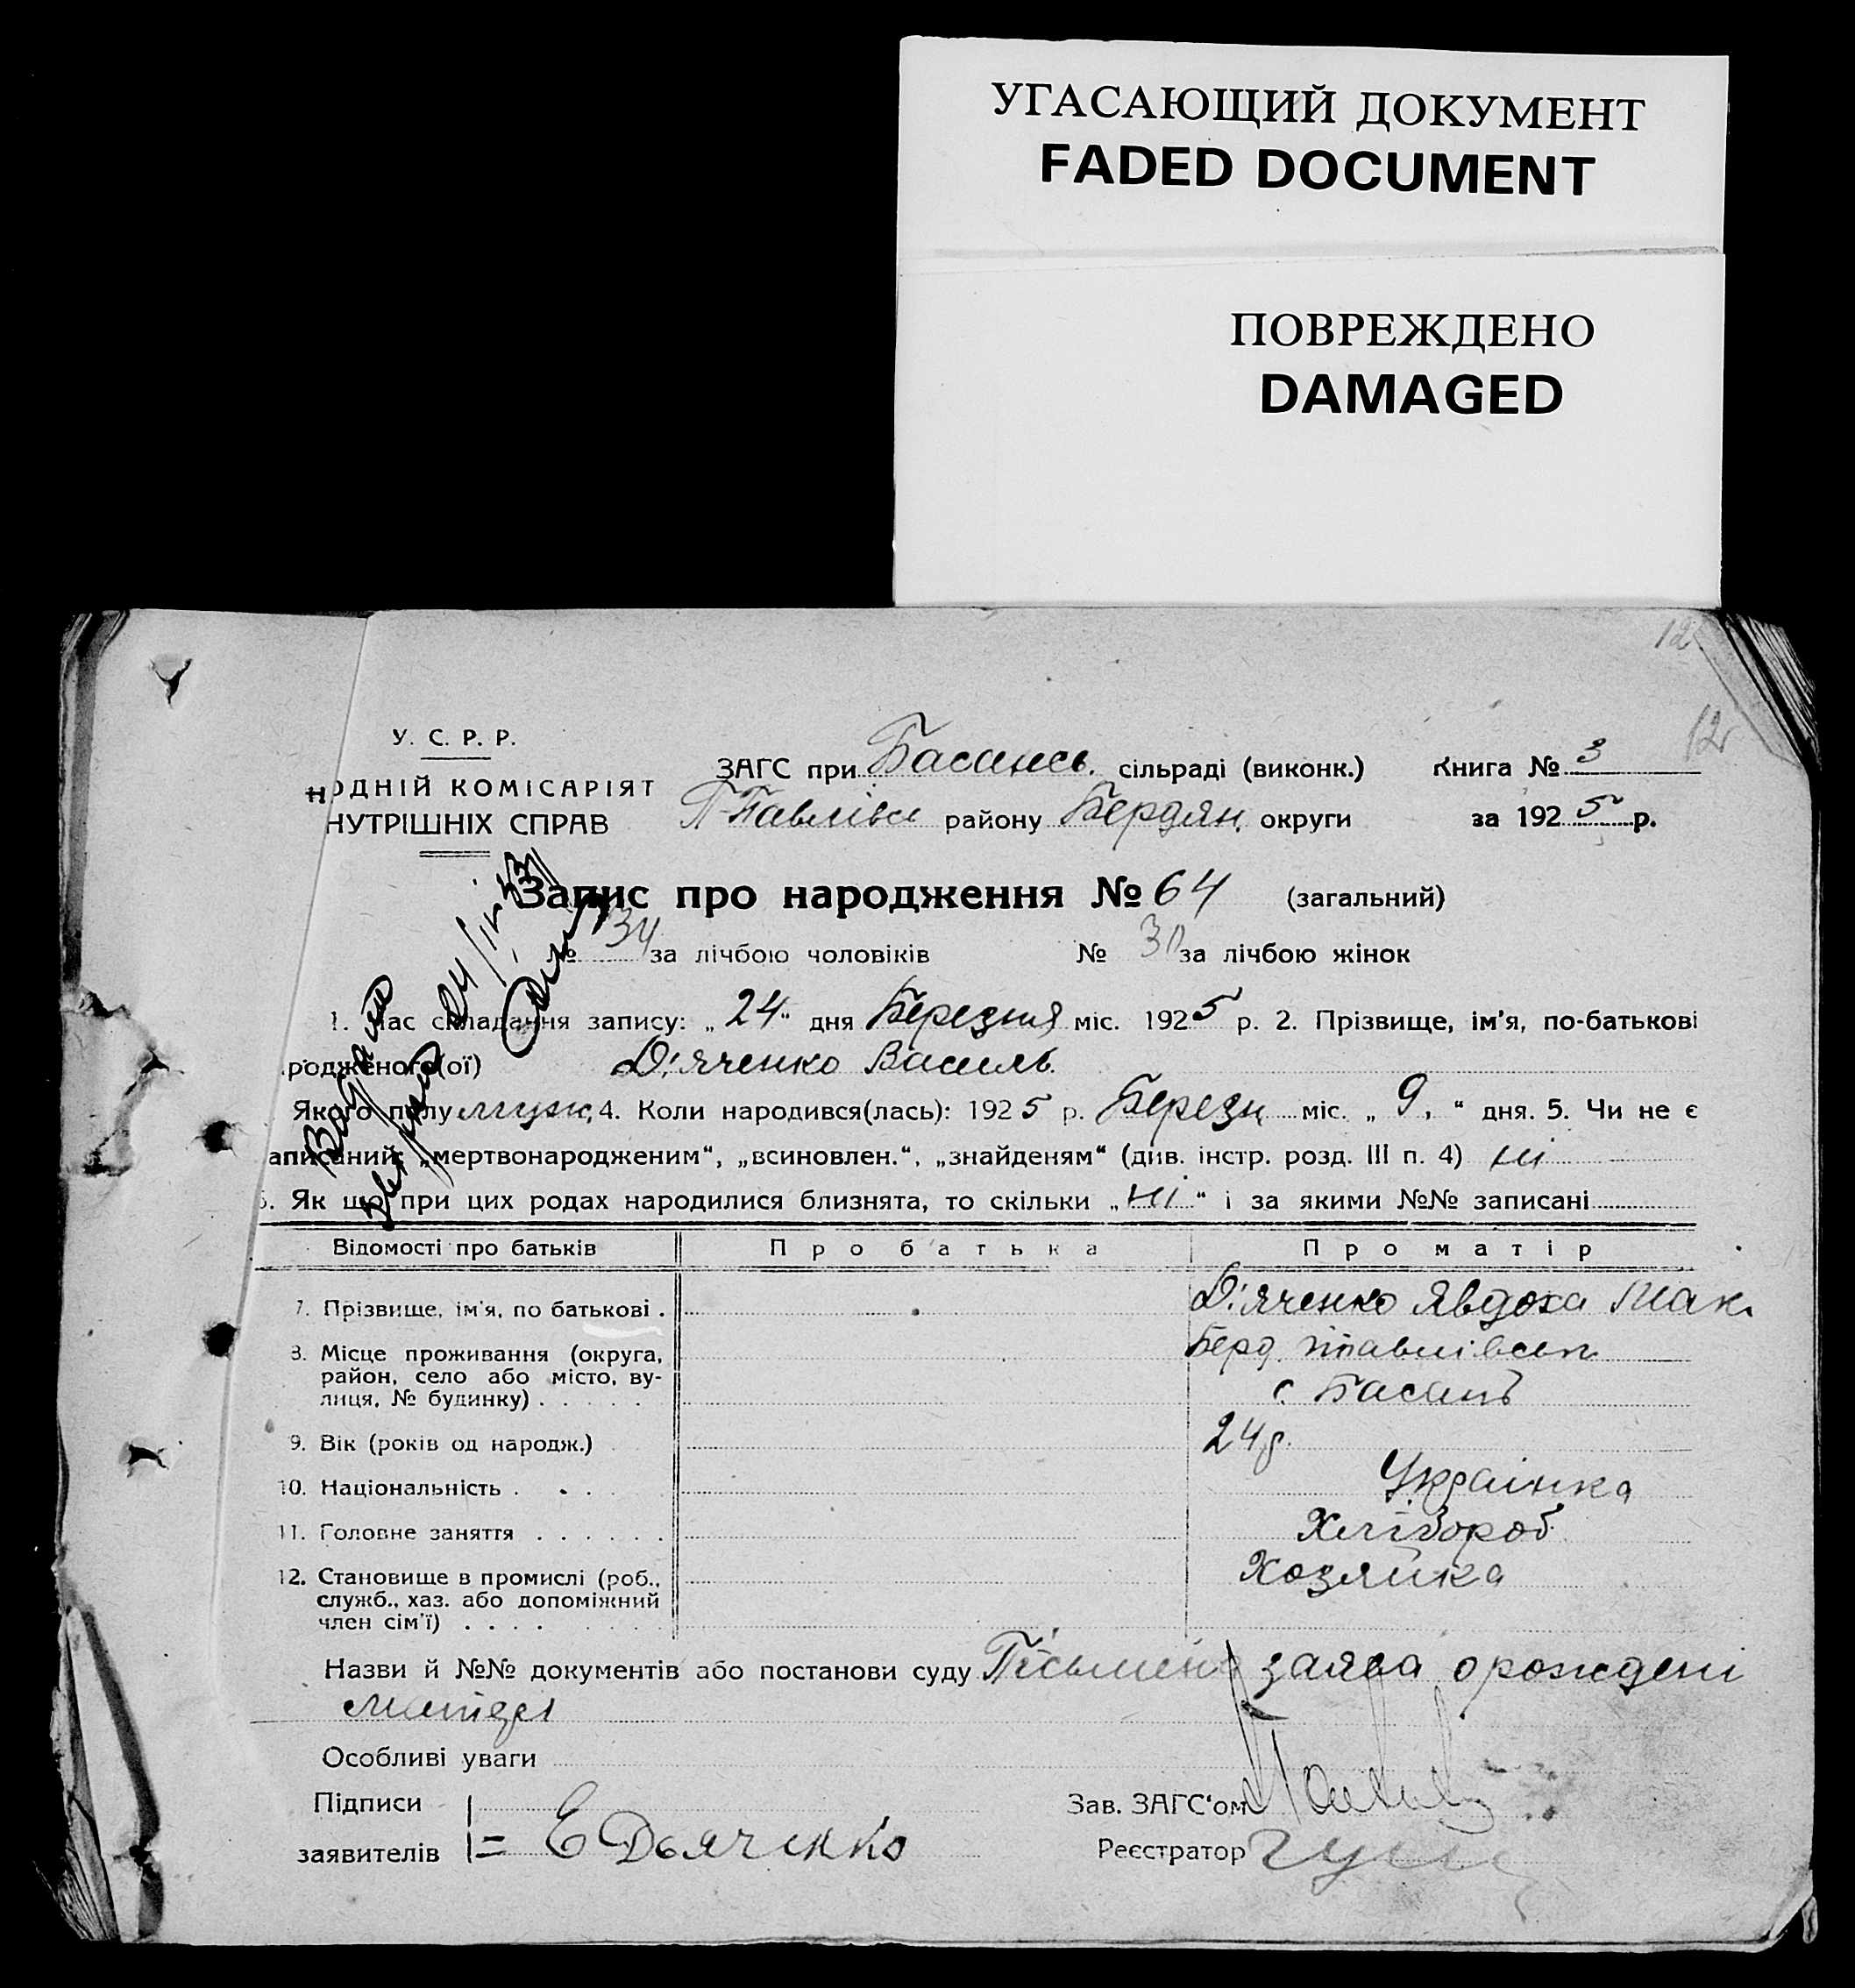 УГАСАЮЩИЙ ДОКУМЕНТ
FADED DOCUMENT
ПОВРЕЖДЕНО
DAMAGED
12
12
У. С. Р. Р.
НОДНІЙ КОМІСАРІЯТ
НУТРІШНІХ СПРАВ
ЗАГС при Басансь. сільраді (виконк.) Книга № 3
П-Павлівсь району Бердян. округи за 1925 р.
Запис про народження № 64 (загальний)
№ 34 за лічбою чоловіків № 30 за лічбою жінок
1. Час складання запису: „24“ дня Березня міс. 1925 р. 2. Прізвище, ім'я, по-батькові
родженого(ої) Д'яченко Василь.
Якого полу мужс. 4. Коли народився(лась): 1925 р. Березн міс. „9.“ дня. 5. Чи не є
аписаний: „мертвонародженим“, „всиновлен.“, „знайденям“ (див. інстр. розд. III п. 4) ні
6. Як що при цих родах народилися близнята, то скільки „ні“ і за якими №№ записані
Відомості про батьків Про батька Про матір
7. Прізвище, ім'я, по батькові . Д'яченко Явдоха Мак.
8. Місце проживання (округа, Берд. Павлівськ
район, село або місто, ву-
лиця, № будинку) . . . . . с. Басань
9. Вік (років од народж.) 24 р.
10. Національність . . . . Українка
11. Головне заняття . . . . . . Хлібороб.
12. Становище в промислі (роб., Хозяйка
служб., хаз. або допоміжний
член сім'ї) . . . .
Назви й №№ документів або постанови суду Пісьмена заява о рождені
матері
Особливі уваги
Підписи Зав. ЗАГС'ом
заявителів Е Дьяченко Реєстратор